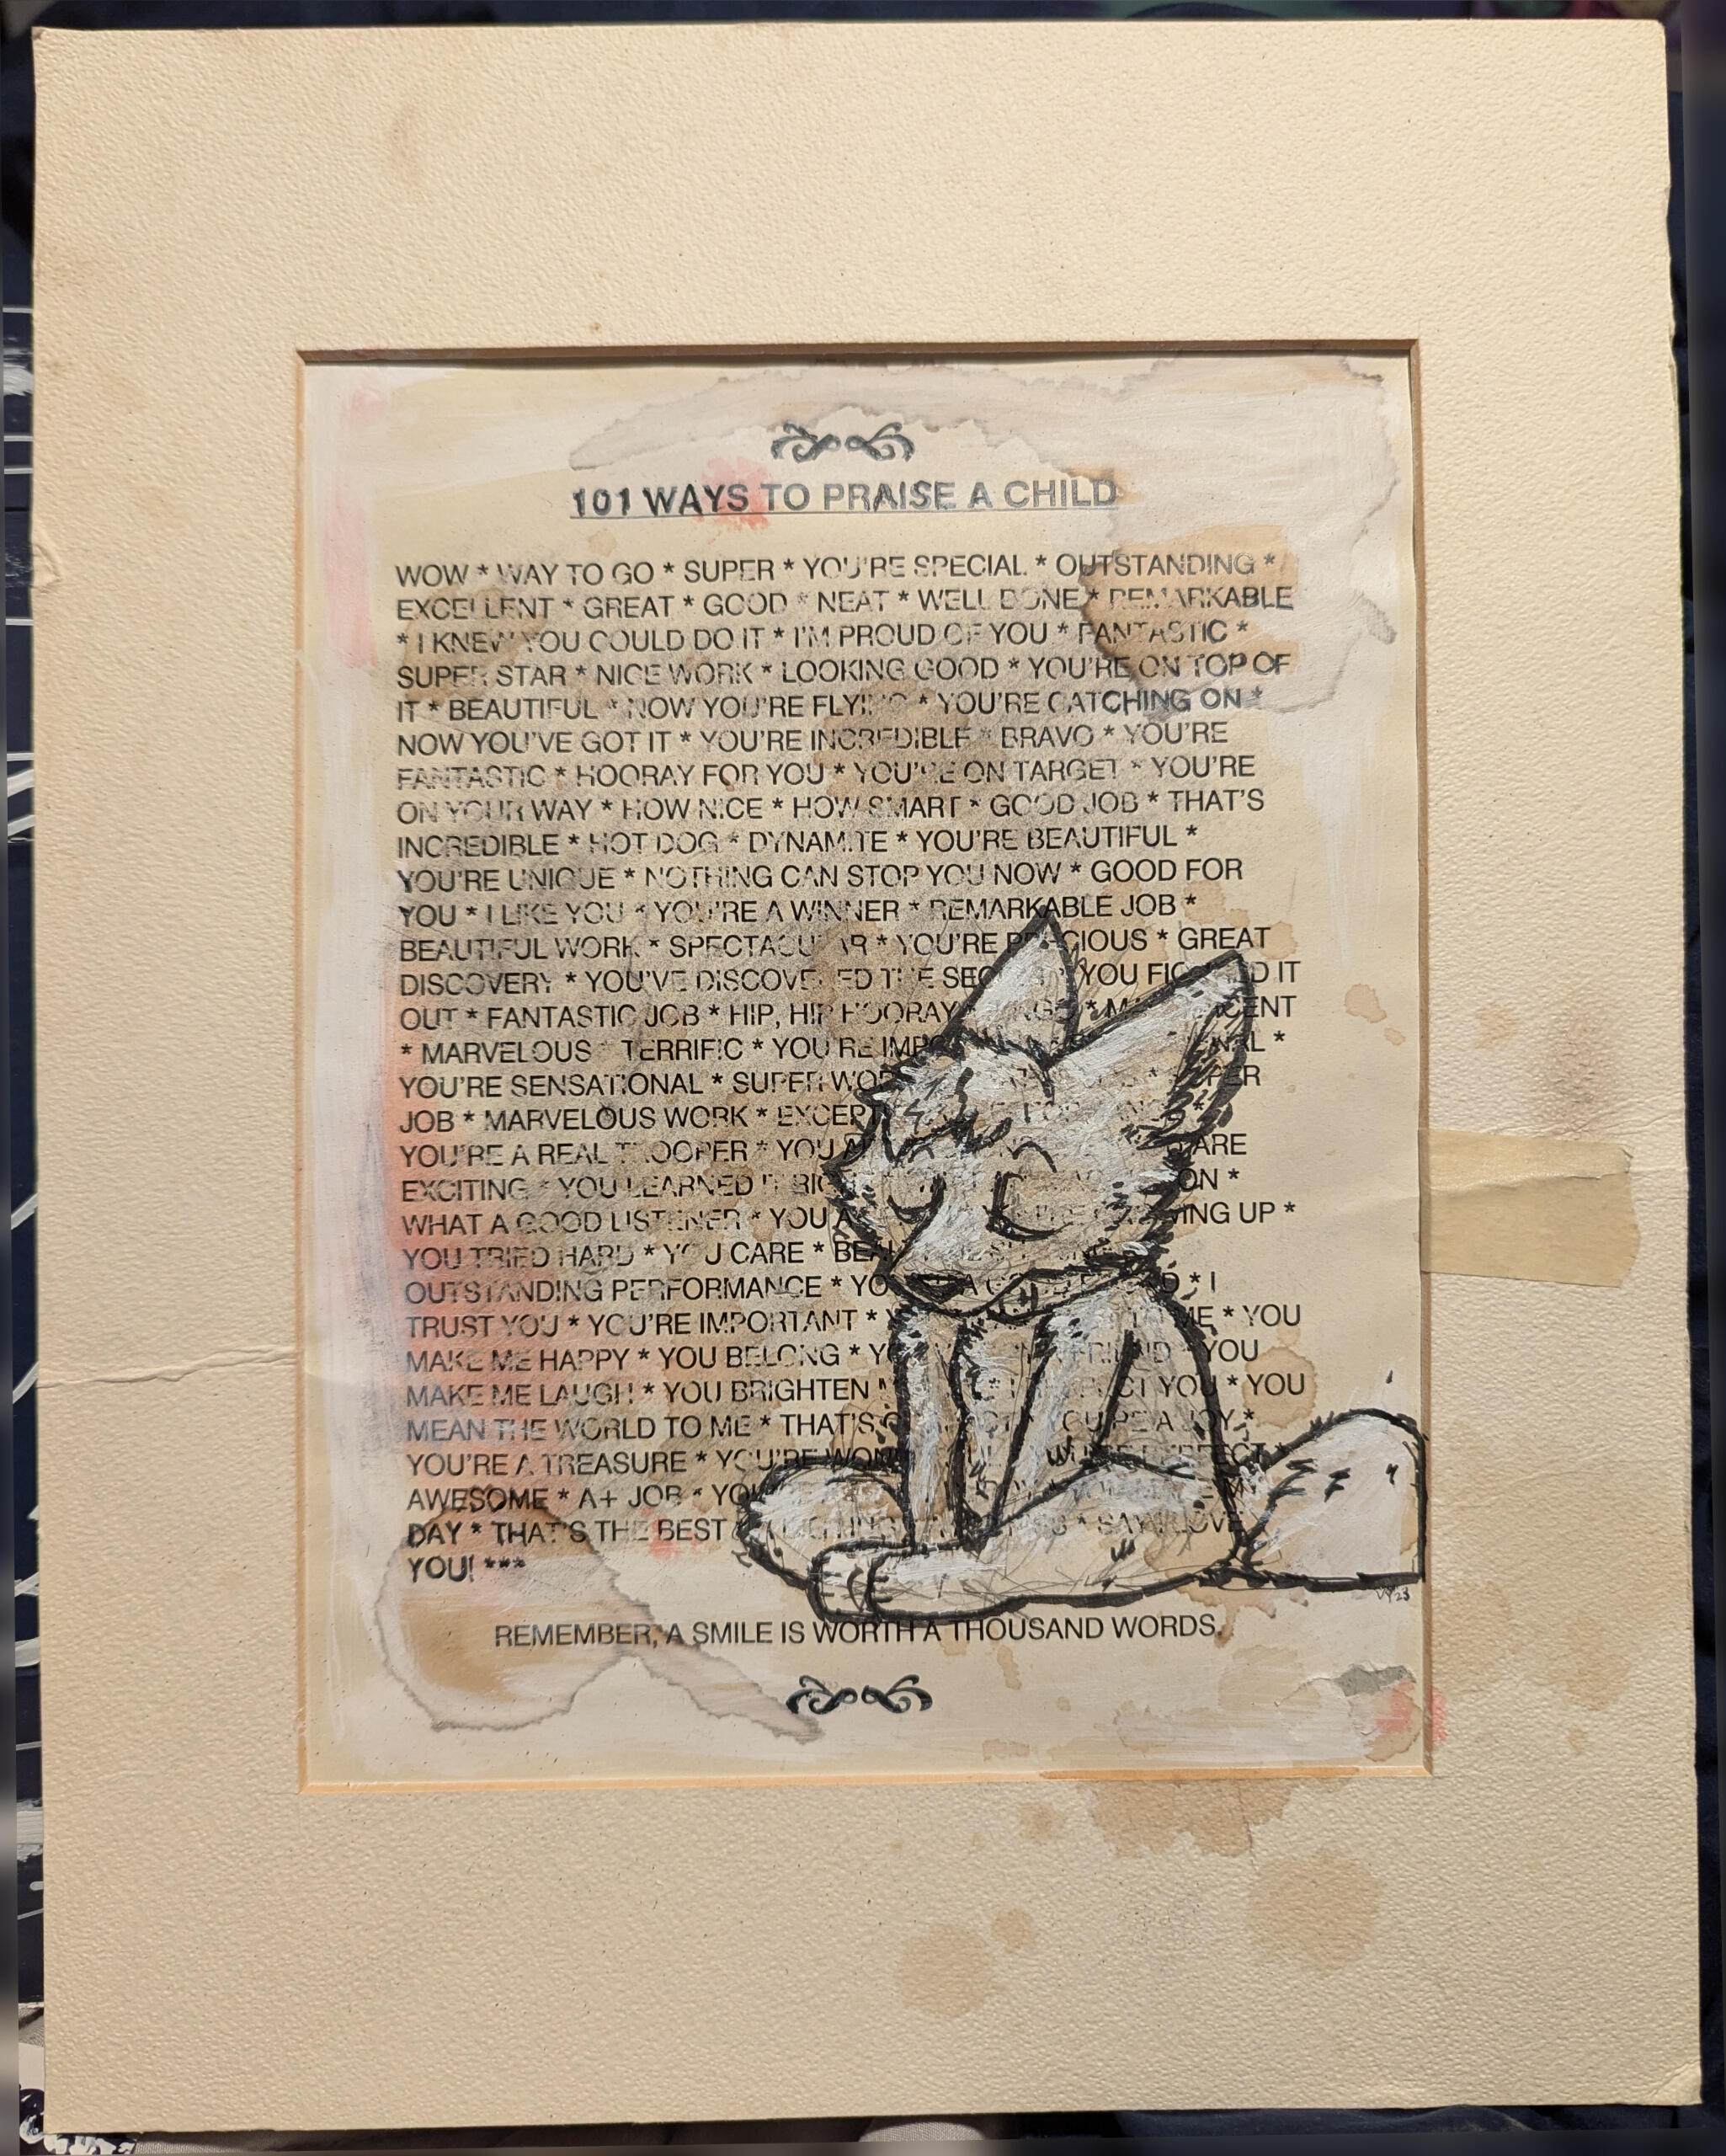 101 WAYS TO PRAISE A CHILD
WOW * WAY TO GO * SUPER * YOU'RE SPECIAL * OUTSTANDING *
EXCELLENT * GREAT * GOOD * NEAT * WELL DONE * REMARKABLE
* I KNEW YOU COULD DO IT * I'M PROUD OF YOU * FANTASTIC *
SUPER STAR * NICE WORK * LOOKING GOOD * YOU'RE ON TOP OF
IT * BEAUTIFUL * NOW YOU'RE FLYING * YOU'RE CATCHING ON *
NOW YOU'VE GOT IT * YOU'RE INCREDIBLE * BRAVO * YOU'RE
FANTASTIC * HOORAY FOR YOU * YOU'RE ON TARGET * YOU'RE
ON YOUR WAY * HOW NICE * HOW SMART * GOOD JOB * THAT'S
INCREDIBLE * HOT DOG * DYNAMITE * YOU'RE BEAUTIFUL *
YOU'RE UNIQUE * NOTHING CAN STOP YOU NOW * GOOD FOR
YOU * I LIKE YOU * YOU'RE A WINNER * REMARKABLE JOB *
BEAUTIFUL WORK * SPECTACULAR * YOU'RE PRECIOUS * GREAT
DISCOVERY * YOU'VE DISCOVERED THE YOU IT
OUT * FANTASTIC JOB * HIP, HIP HOORAY *
* MARVELOUS * TERRIFIC * YOU'RE *
YOU'RE SENSATIONAL * SUPER
JOB * MARVELOUS WORK *
YOU'RE A REAL TROOPER * YOU ARE
EXCITING * YOU LEARNED IT *
WHAT A GOOD LISTENER * YOU UP *
YOU TRIED HARD * YOU CARE *
OUTSTANDING PERFORMANCE * * I
TRUST YOU * YOU'RE IMPORTANT * ME * YOU
MAKE ME HAPPY * YOU BELONG * FRIEND * YOU
MAKE ME LAUGH * YOU BRIGHTEN YOU * YOU
MEAN THE WORLD TO ME * THAT'S YOU'RE A JOY *
YOU'RE A TREASURE * YOU'RE PERFECT *
AWESOME * A+ JOB *
DAY * THAT'S THE BEST * SAY I LOVE
YOU! ***
REMEMBER, A SMILE IS WORTH A THOUSAND WORDS.